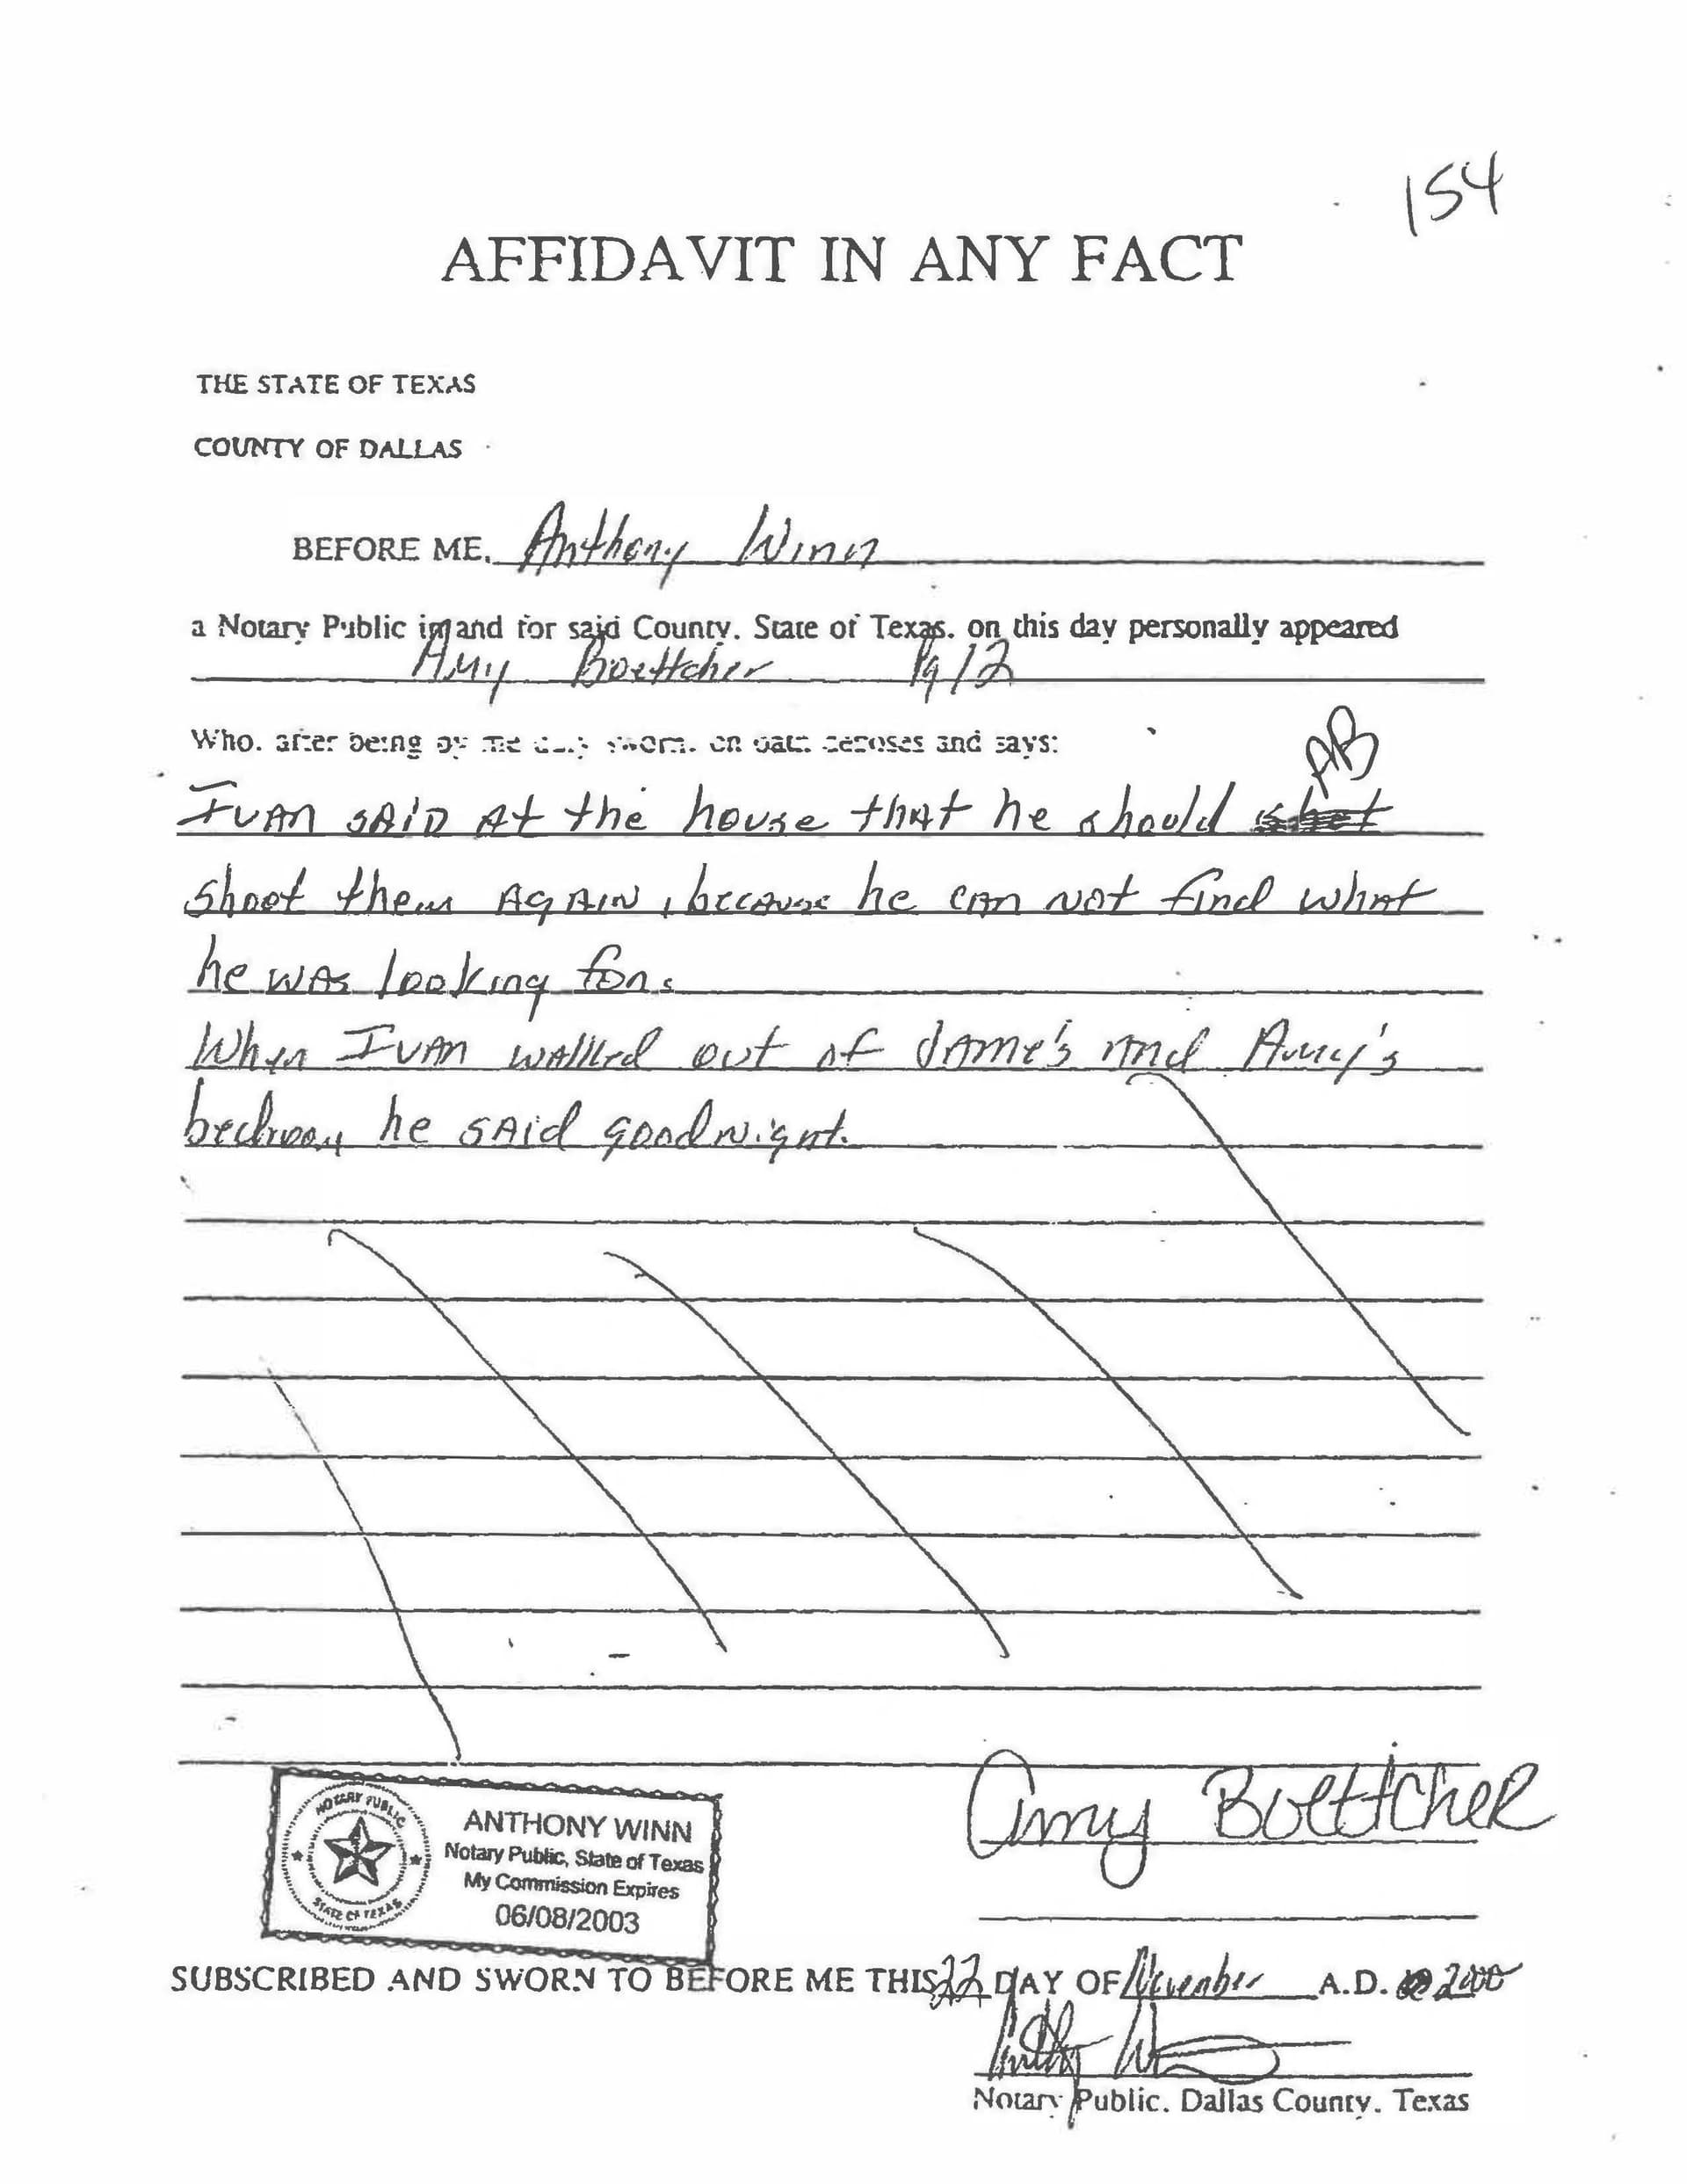 154
AFFIDAVIT IN ANY FACT
THE STATE OF TEXAS
COUNTY OF DALLAS
BEFORE ME, Anthony Winn
a Notary Public in and for said County, State of Texas, on this day personally appeared
Amy Boettcher Pg 12
Who, after being by me duly sworn, on oath deposes and says:
AB
Ivan said at the house that he should
shoot them again, because he can not find what
he was looking for.
When Ivan walked out of Jame's and Amy's
bedroom he said goodnight.
Amy Boettcher
NOTARY PUBLIC
STATE OF TEXAS
ANTHONY WINN
Notary Public, State of Texas
My Commission Expires
06/08/2003
SUBSCRIBED AND SWORN TO BEFORE ME THIS 22 DAY OF November A.D. 2000
Anthony Winn
Notary Public, Dallas County, Texas